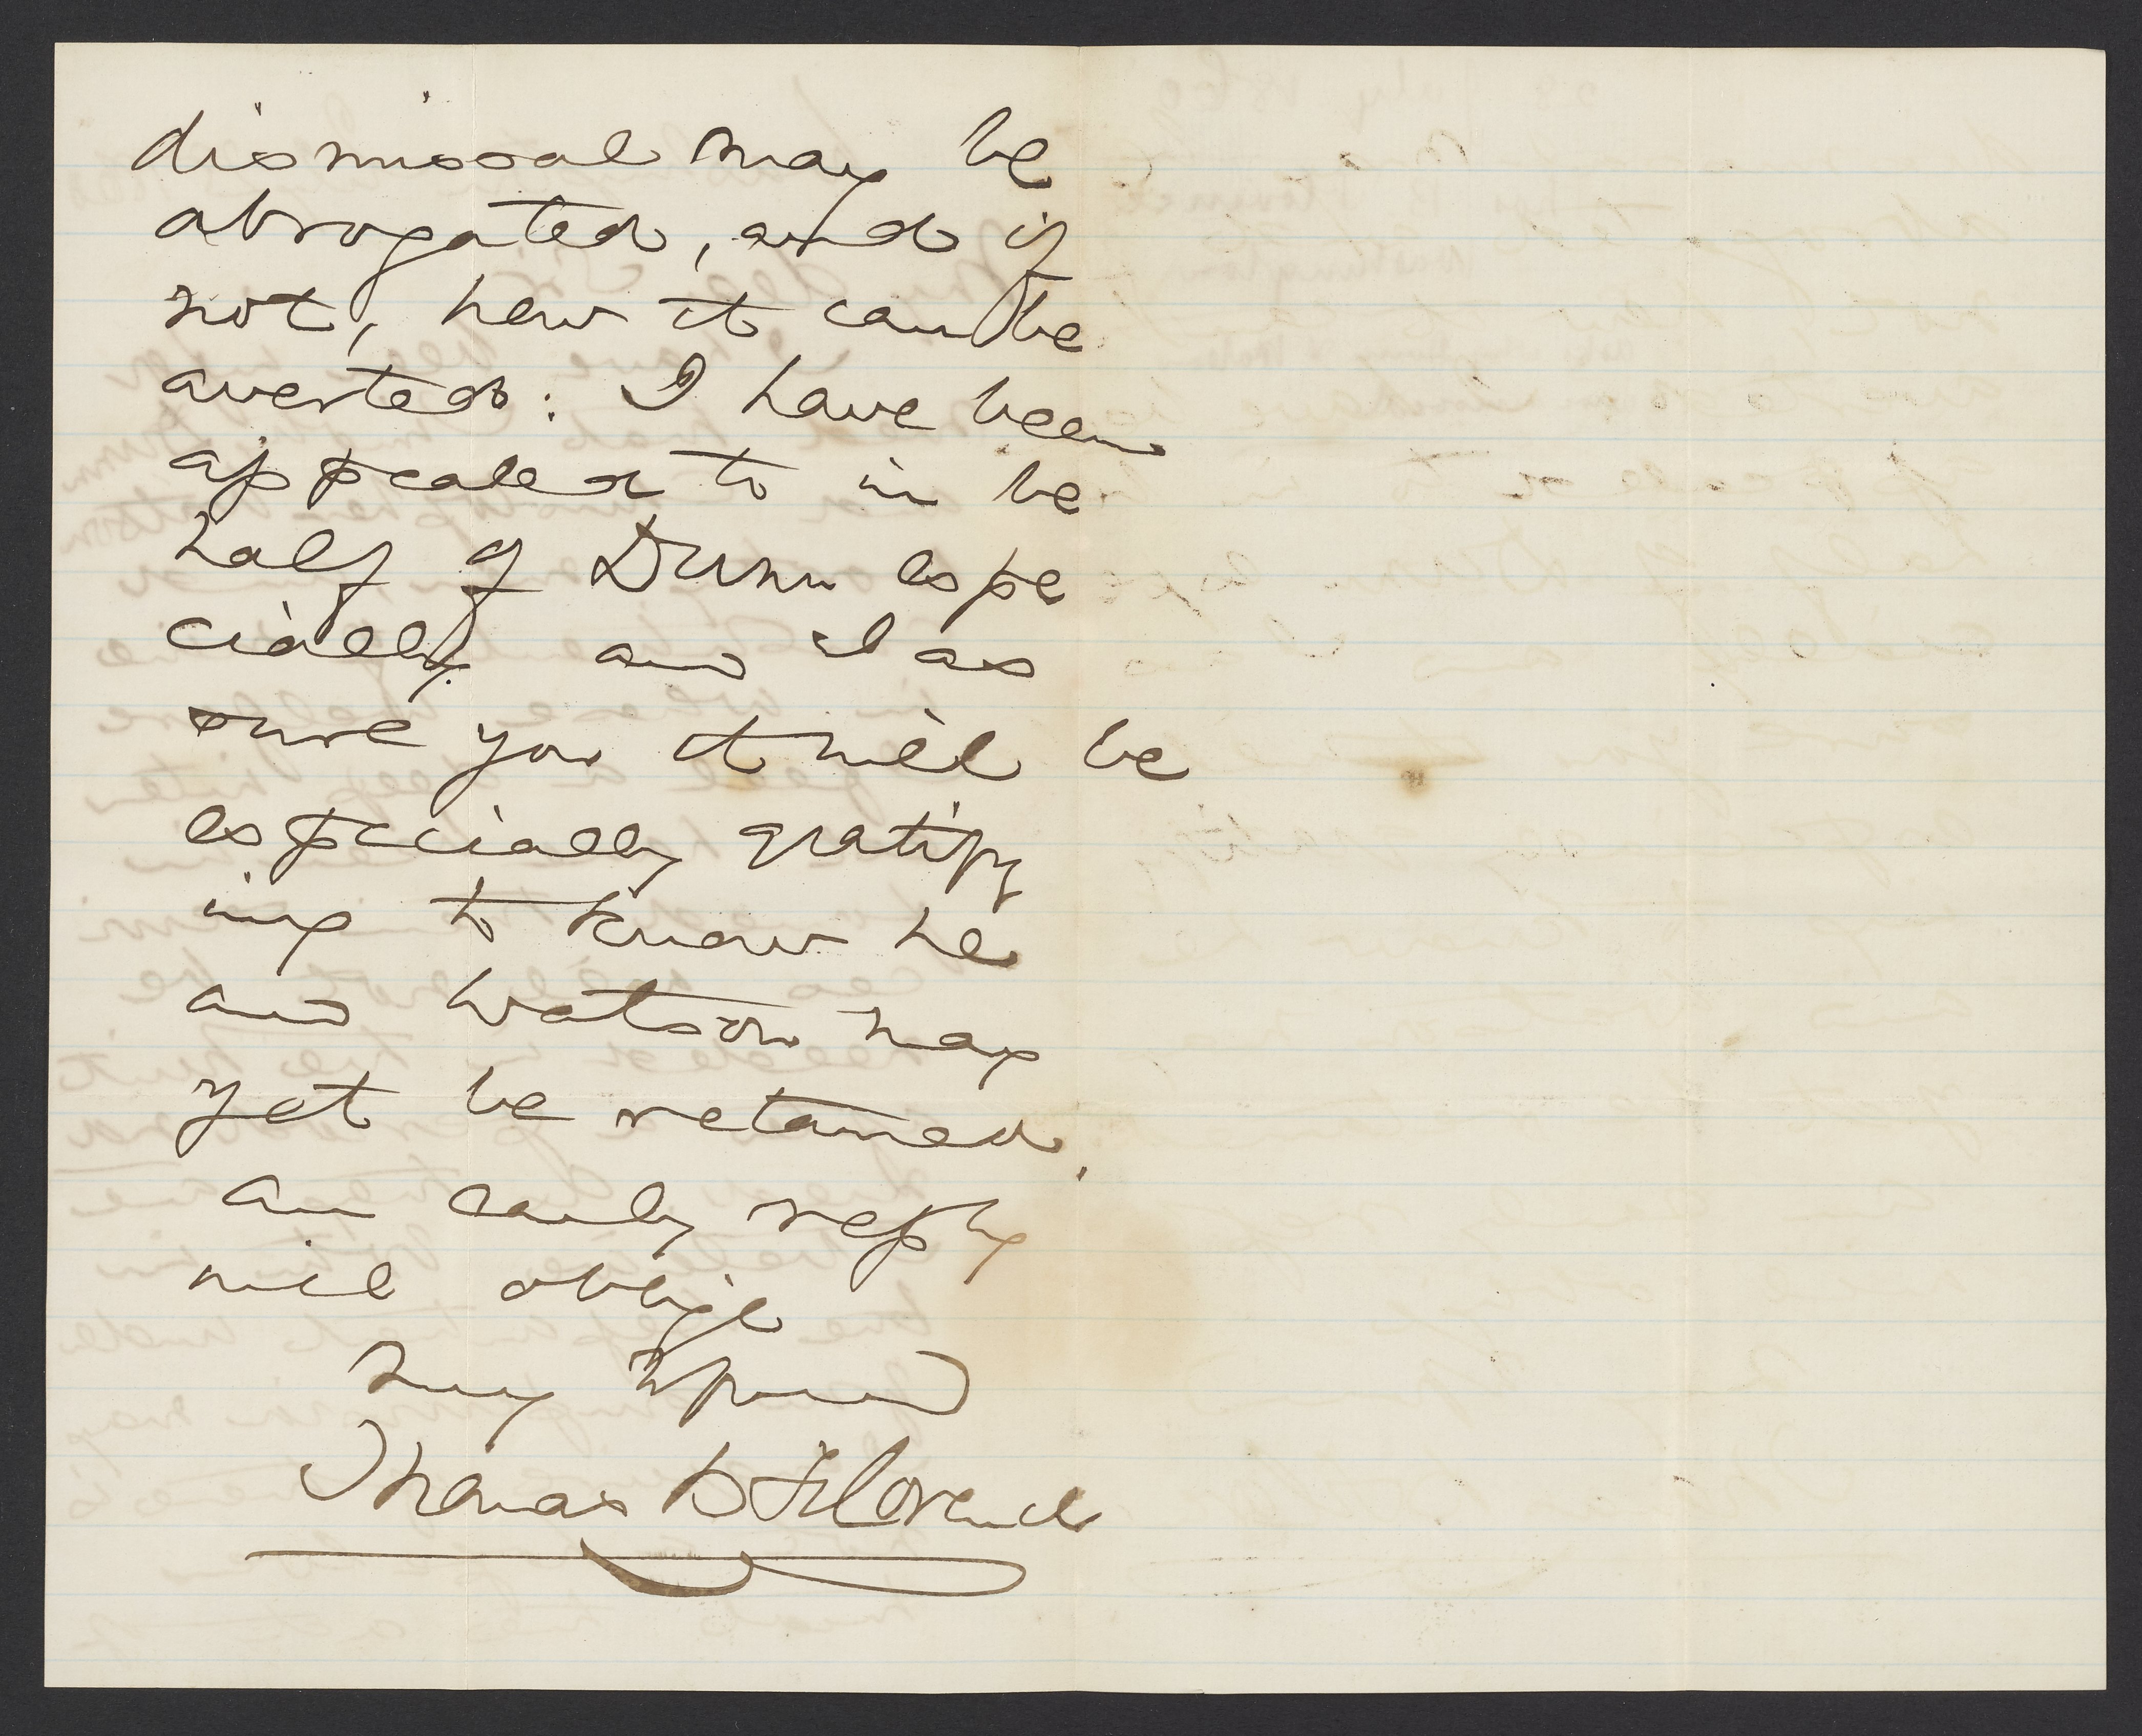 dismissal may be
abrogated, and if
not, how it can be
averted: I have been
appealed to in be
half of Dunn espe
cially and I as
sure you it will be
especially gratify
ing to know he
and Watson may
yet be retained.
An early reply
will oblige
Thomas B Florence